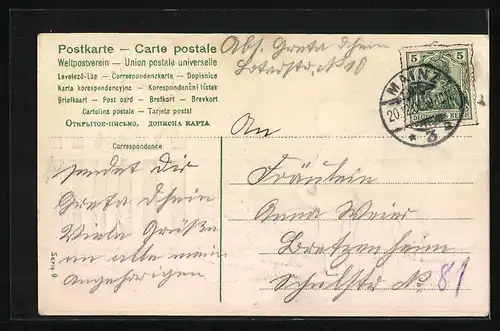 Postkarte – Carte postale
Weltpostverein – Union postale universelle
Levelező-Lap – Correspondenzkarte – Dopisnice
Karta korespondencyjna – Korespondenční lístek
Briefkaart – Post card – Brefkort – Brevkort
Cartolina postale – Tarjeta postal
Открытое-письмо. дописна карта
Abs. Greta Dhem
No 10
5 5
DEUTSCHES REICH
MAINZ
20.12
* 3
An
Correspondence
sendet dir
Greta Dhem
Viele Grüße
an alle mein
Angehörigen
Fräulein
Anna Weier
Bretzenheim
Schulstr No. 81
Serie 9